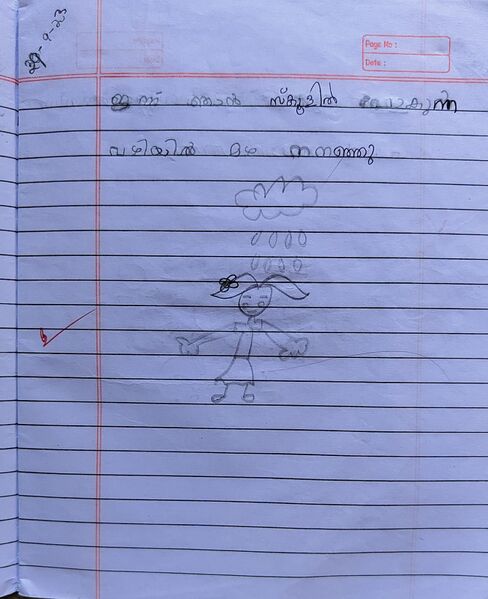 29-9-23
Page No :
Date :
ഇന്ന് ഞാൻ സ്കൂളിൽ പോകുന്ന
വഴിയിൽ മഴ നനഞ്ഞു